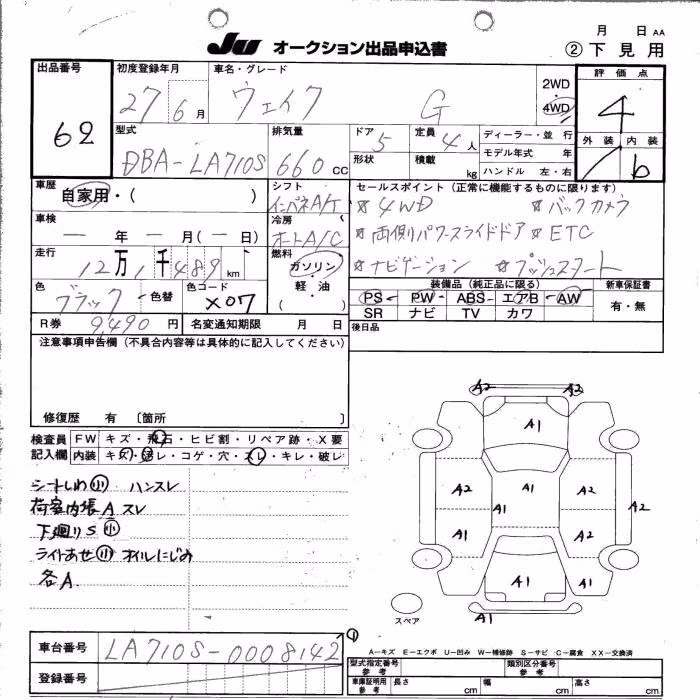 月 日 AA
JU オークション出品申込書 ②下見用
出品番号 62
初度登録年月 27年 6月
車名・グレード ウェイク G
2WD 4WD
評価点 4
外装 内装 b
型式 DBA-LA710S
排気量 660 CC
ドア 5
形状
定員 4人
積載 kg
ディーラー・並 行
モデル年式 年
ハンドル 左・右
車歴 自家用・( )
シフト インパネA/T
セールスポイント(正常に機能するものに限ります)
☆4WD ☆バックカメラ
車検 ー年 ー月(ー日)
冷房 オートA/C
☆両側パワースライドドア ☆ETC
走行 12万1千489km
燃料 ガソリン・軽油・( )
☆ナビゲーション ☆プッシュスタート
色 ブラック 色替
色コード X07
装備品(純正品に限る) 新車保証書
PS PW ABS エアB AW 有・無
SR ナビ TV カワ
R券 9490円 名変通知期限 月 日
後日品
注意事項申告欄(不具合内容等は具体的に記入してください)
修復歴 有 〔箇所 〕
検査員 FW キズ・飛石・ヒビ割・リペア跡・X要
記入欄 内装 キズ・汚レ・コゲ・穴・スレ・キレ・破レ
シートしわ小 ハンスレ
荷室内張Aスレ
下廻りS小
ライトあせ小 オイルにじみ
各A
A2 A2
A1
A2 A1 A2 A2
A1
A1 A1
A1 A1
A1
スペア
車台番号 LA710S-0008142
①
A-キズ E-エクボ U-凹み W-補修跡 S-サビ C-腐食 XX-交換済
登録番号
型式指定番号 参考 類別区分番号 参考
車庫証明用 参考 長さ cm 幅 cm 高さ cm